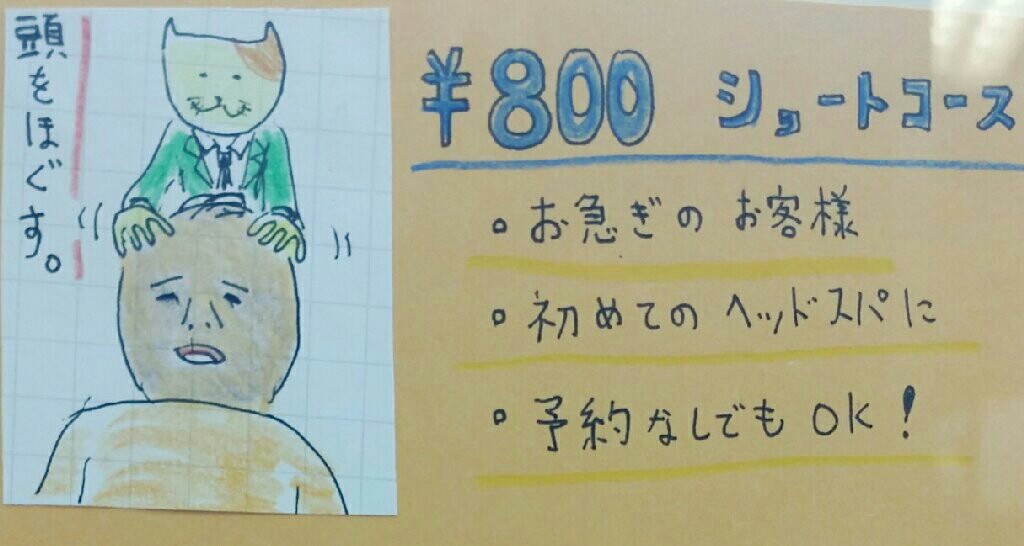 頭をほぐす。
¥800 ショートコース
。お急ぎのお客様
。初めてのヘッドスパに
。予約なしでもOK!